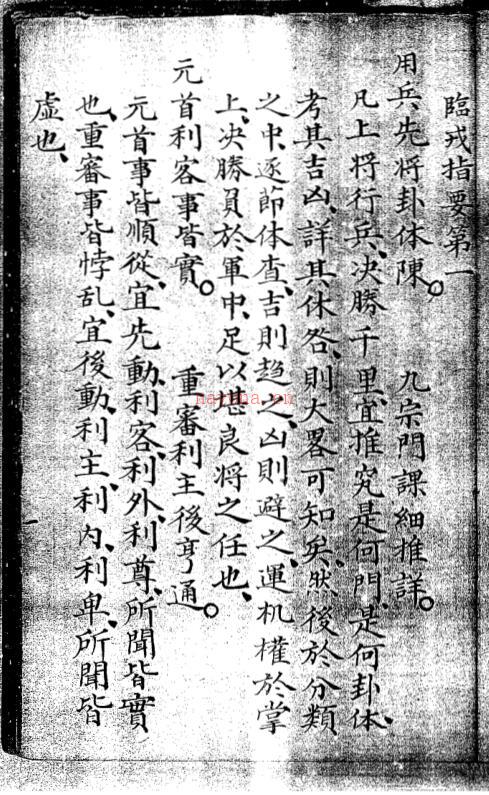 臨戎指要第一
用兵先將卦体陳。　九宗門課細推詳。
凡上將行兵、决勝千里、宜推究是何門、是何卦体、
考其吉凶、詳其休咎、則大畧可知矣、然後於分類
之中、逐節体查、吉則趋之、凶則避之、運机權於掌
上、决勝負於軍中、足以堪良將之任也、
元首利客事皆實。　重審利主後亨通。
元首事皆順從、宜先動、利客、利外、利尊、所聞皆實
也、重審事皆悖乱、宜後動、利主、利内、利卑、所聞皆
虛也、